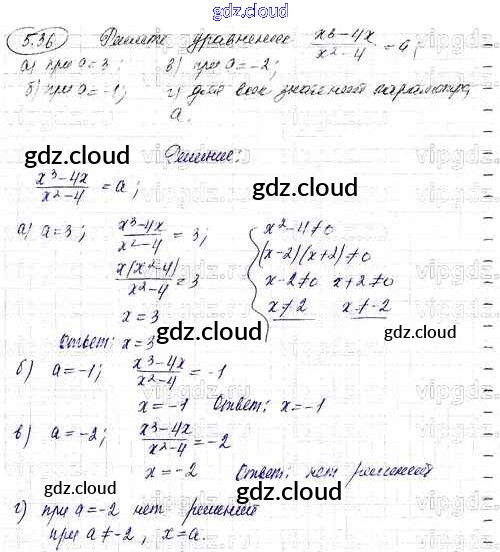 gdz.cloud
5.36. Решите уравнение (x³-4x)/(x²-4) = a;
а) при a=3; в) при a=-2;
б) при a=-1; г) для всех значений параметра
a.
gdz.cloud Решение: gdz.cloud
(x³-4x)/(x²-4) = a;
а) a=3; (x³-4x)/(x²-4) = 3; { x²-4≠0
(x-2)(x+2)≠0
x(x²-4)/(x²-4) = 3
x-2≠0 x+2≠0
x=3 x≠2 x≠-2
gdz.cloud
Ответ: x=3
gdz.cloud
б) a=-1; (x³-4x)/(x²-4) = -1
x=-1 Ответ: x=-1
в) a=-2; (x³-4x)/(x²-4) = -2
x=-2 Ответ: нет решений
gdz.cloud gdz.cloud
г) при a=-2 нет решений
при a≠-2, x=a.
gdz.cloud